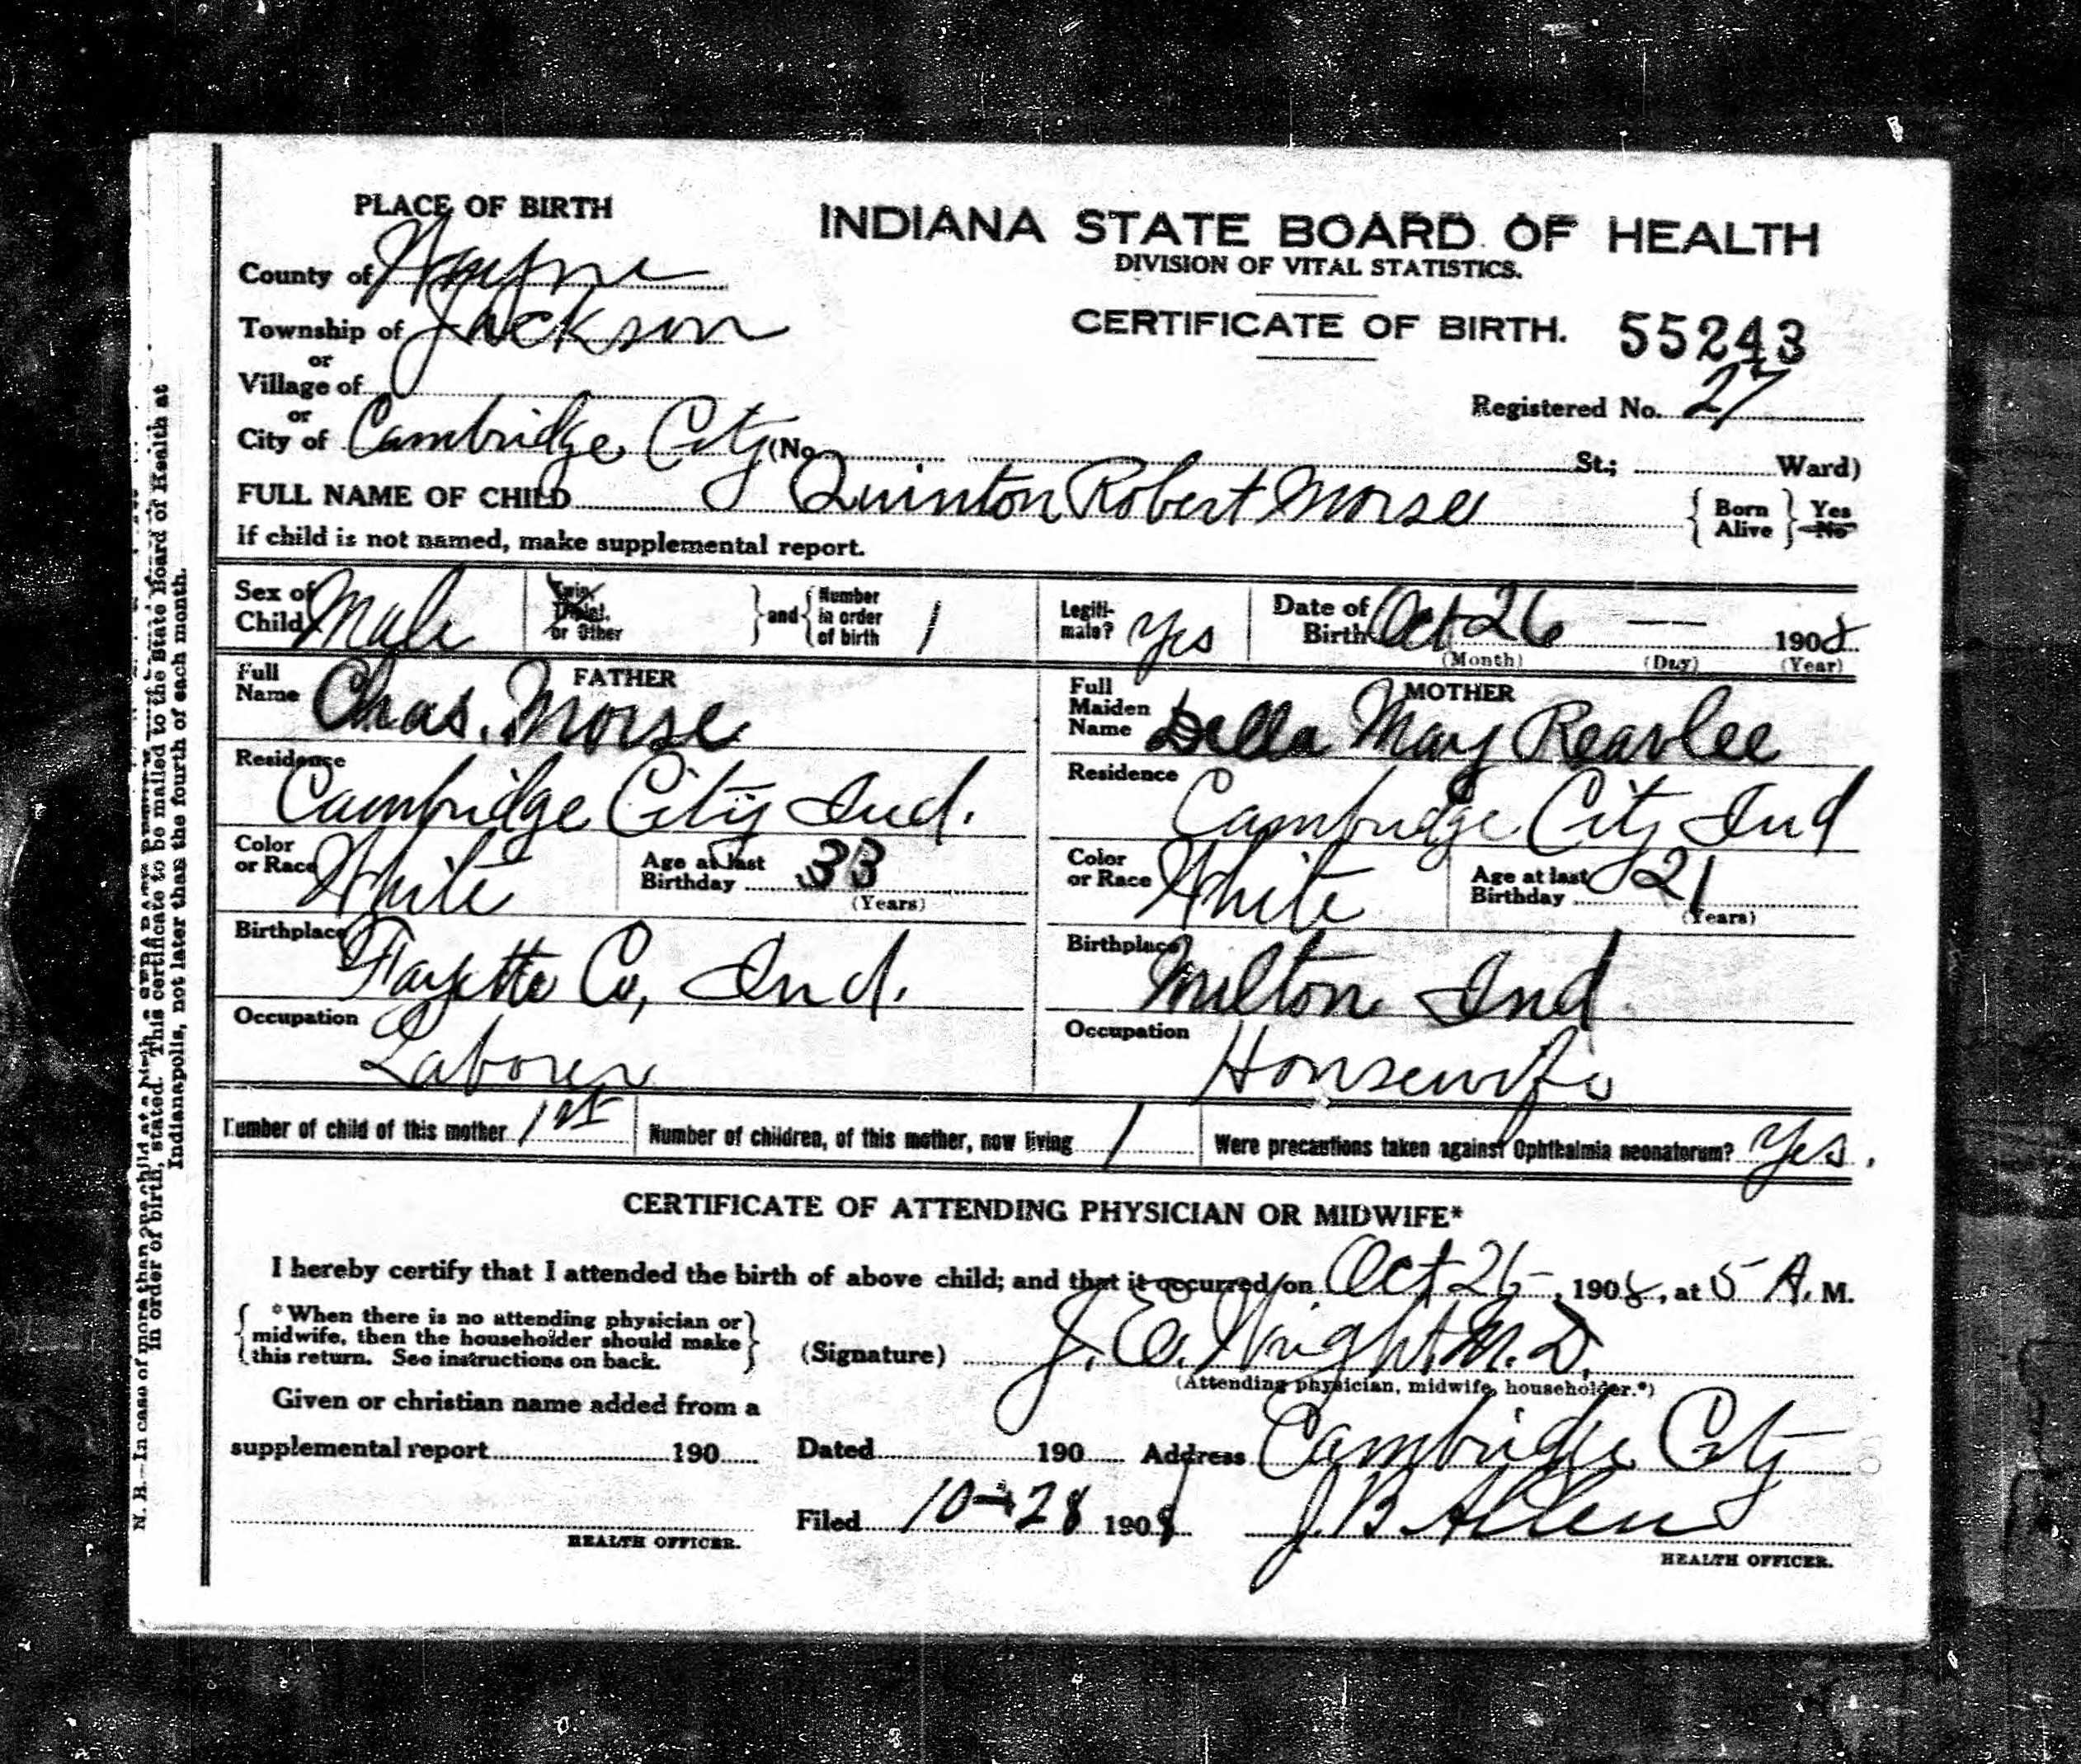 PLACE OF BIRTH
INDIANA STATE BOARD OF HEALTH
DIVISION OF VITAL STATISTICS.
County of Wayne
Township of Jackson
CERTIFICATE OF BIRTH. 55243
or
Village of
Registered No. 27
or
City of Cambridge City (No. St.; Ward)
FULL NAME OF CHILD Quinton Robert Morse { Born Alive } Yes No
If child is not named, make supplemental report.
Sex of Child Male Twin, Triplet, or Other } and { Number in order of birth 1 Legiti-mate? Yes Date of Birth Oct 26 — 1908
(Month) (Day) (Year)
FATHER
Full Name Chas. Morse
Residence
Cambridge City Ind.
Color or Race White Age at last Birthday 33
(Years)
Birthplace
Fayette Co, Ind.
Occupation
Laborer
MOTHER
Full Maiden Name Della May Reavlee
Residence
Cambridge City Ind
Color or Race White Age at last Birthday 21
(Years)
Birthplace
Milton Ind
Occupation
Housewife
Number of child of this mother 1st Number of children, of this mother, now living 1 Were precautions taken against Ophthalmia neonatorum? Yes.
CERTIFICATE OF ATTENDING PHYSICIAN OR MIDWIFE*
I hereby certify that I attended the birth of above child; and that it occurred on Oct 26, 1908, at 5 A. M.
{ *When there is no attending physician or
midwife, then the householder should make
this return. See instructions on back. }
(Signature) J. E. Wright M. D.
(Attending physician, midwife, householder.*)
Given or christian name added from a
supplemental report 190
Dated 190 Address Cambridge City
Filed 10-28 1908 J B Allen
HEALTH OFFICER.
HEALTH OFFICER.
N. B.—In case of more than one child at a birth,
in order of birth, stated. This certificate to be mailed to the State Board of Health at
Indianapolis, not later than the fourth of each month.